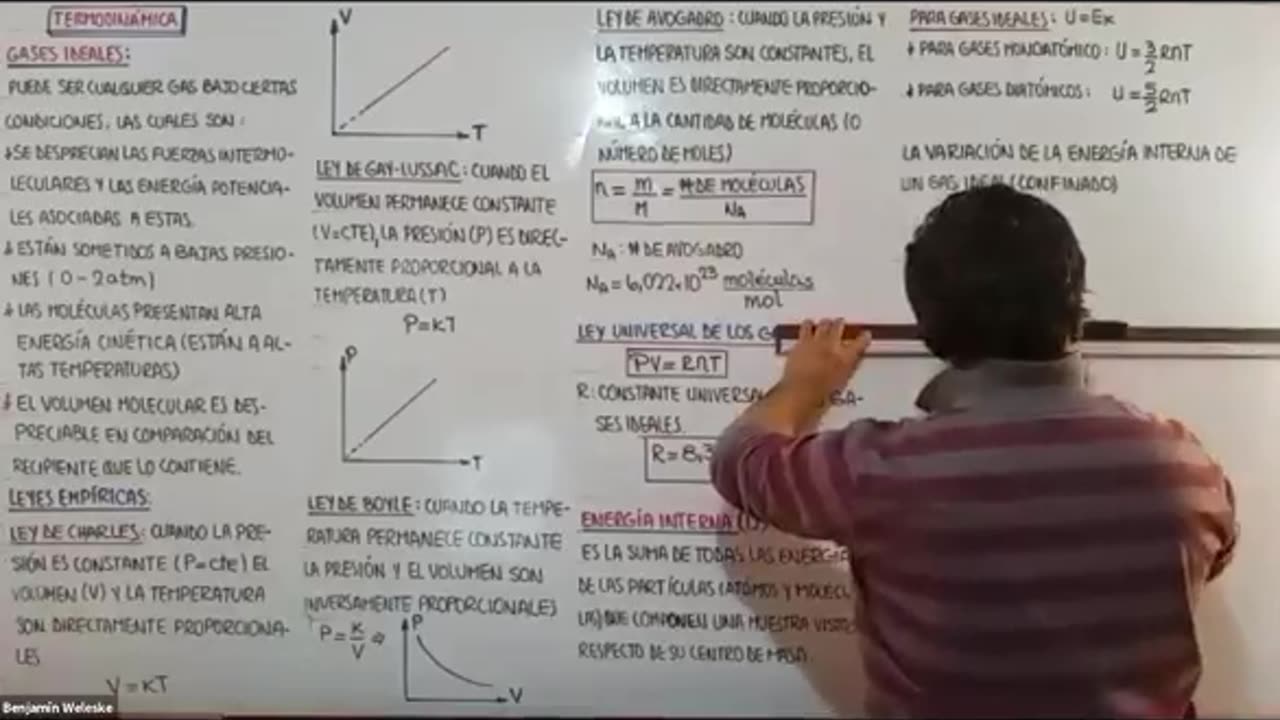 TERMODINÁMICA
GASES IDEALES:
PUEDE SER CUALQUIER GAS BAJO CIERTAS
CONDICIONES, LAS CUALES SON:
SE DESPRECIAN LAS FUERZAS INTERMO-
LECULARES Y LAS ENERGÍA POTENCIA-
LES ASOCIADAS A ESTAS.
ESTÁN SOMETIDOS A BAJAS PRESIO-
NES (0-2atm)
LAS MOLÉCULAS PRESENTAN ALTA
ENERGÍA CINÉTICA (ESTÁN A AL-
TAS TEMPERATURAS)
EL VOLUMEN MOLECULAR ES DES-
PRECIABLE EN COMPARACIÓN DEL
RECIPIENTE QUE LO CONTIENE.
LEYES EMPÍRICAS:
LEY DE CHARLES: CUANDO LA PRE-
SIÓN ES CONSTANTE (P=cte) EL
VOLUMEN (V) Y LA TEMPERATURA
SON DIRECTAMENTE PROPORCIONA-
LES
V=KT
V
T
LEY DE GAY-LUSSAC: CUANDO EL
VOLUMEN PERMANECE CONSTANTE
(V=CTE), LA PRESIÓN (P) ES DIREC-
TAMENTE PROPORCIONAL A LA
TEMPERATURA (T)
P=KT
P
T
LEY DE BOYLE: CUANDO LA TEMPE-
RATURA PERMANECE CONSTANTE
LA PRESIÓN Y EL VOLUMEN SON
INVERSAMENTE PROPORCIONALES
P=K/V ⇒
P
V
LEY DE AVOGADRO: CUANDO LA PRESIÓN Y
LA TEMPERATURA SON CONSTANTES, EL
VOLUMEN ES DIRECTAMENTE PROPORCIO-
A LA CANTIDAD DE MOLÉCULAS (O
NÚMERO DE MOLES)
n = m/M = # DE MOLÉCULAS/NA
NA: # DE AVOGADRO
NA = 6,022·10²³ moléculas/mol
LEY UNIVERSAL DE LOS
PV=RnT
R: CONSTANTE GA-
SES IDEALES
R=8,3
ENERGÍA INTERNA
ES LA SUMA DE TODAS LAS
DE LAS PARTÍCULAS (ATÓMOS Y
QUE COMPONEN UNA MUESTRA
RESPECTO DE SU CENTRO DE MASA.
PARA GASES IDEALES: U=Ek
PARA GASES MONOATÓMICO: U=3/2 RnT
PARA GASES DIATÓMICOS: U=5/2 RnT
LA VARIACIÓN DE LA ENERGÍA INTERNA DE
UN GAS IDEAL (CONFINADO)
Benjamín Weleske